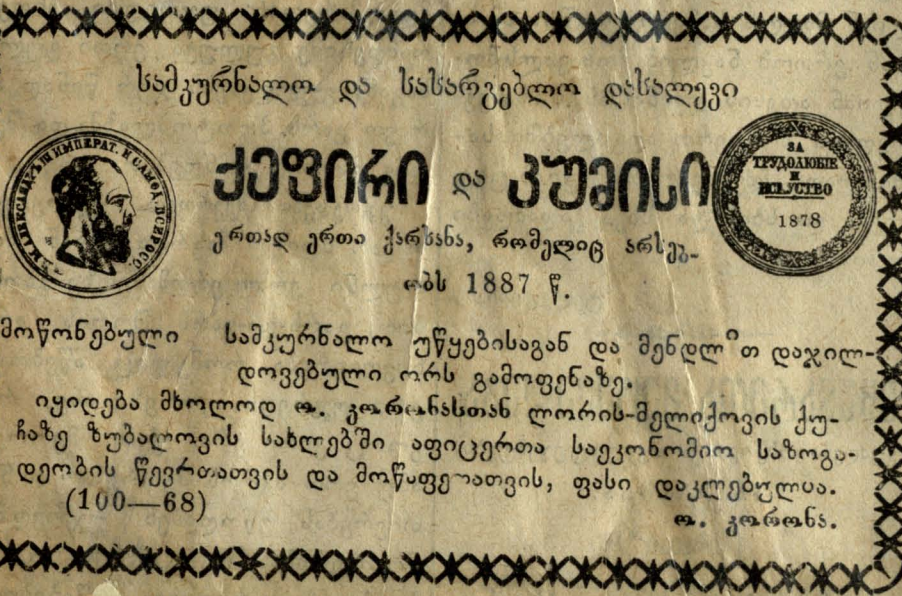 სამკურნალო და სასარგებლო დასალევი
Д. М. АЛЕКСАНДЪ III ИМПЕРАТ. И САМОД. ВСЕРОСС.
ქეფირი და კუმისი
ЗА
ТРУДОЛЮБІЕ
И
ИСКУСТВО
1878
ერთად ერთი ქარხანა, რომელიც არსებ-
ობს 1887 წ.
მოწონებული სამკურნალო უწყებისაგან და მენდლ°თ დაჯილ-
დოვებული ორს გამოფენაზე.
იყიდება მხოლოდ ო. კორონასთან ლორის-მელიქოვის ქუ-
ჩაზე ზუბალოვის სახლებში აფიცერთა საეკონომიო საზოგა-
დეობის წევრთათვის და მოწაფეთათვის, ფასი დაკლებულია.
(100—68)
ო. კორონა.